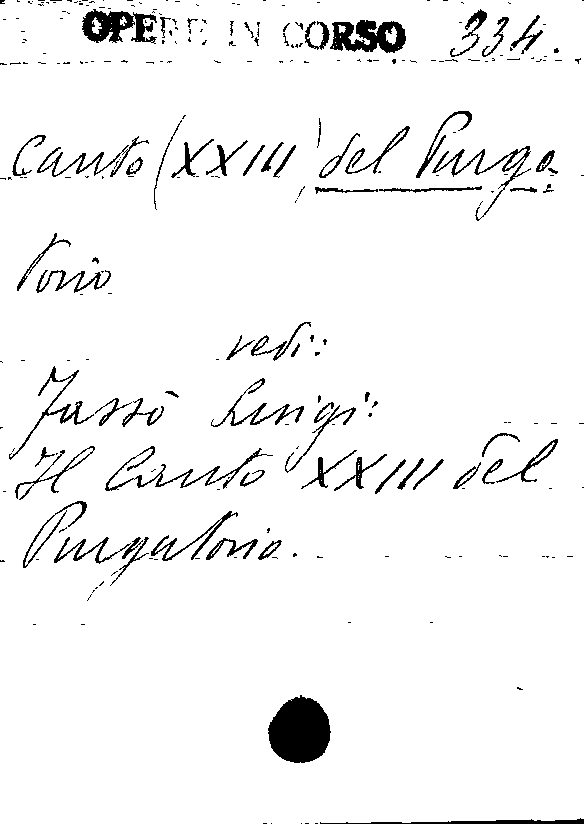 OPERE IN CORSO 334.
Canto (XXIII) del Purga
torio
vedi:
Fassò Luigi:
Il Canto XXIII del
Purgatorio.